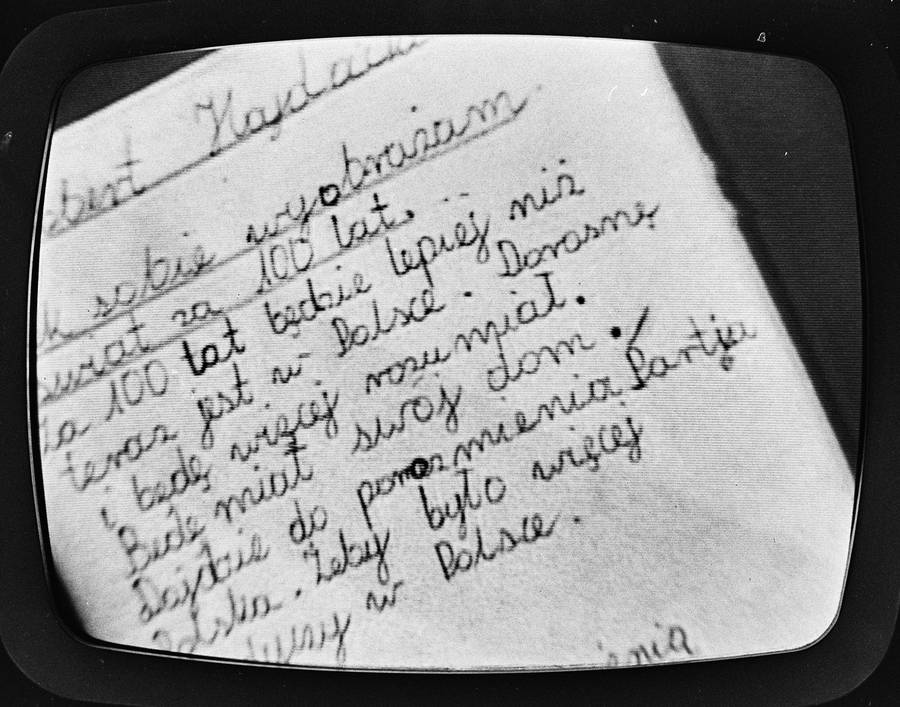 bert Hajdasz
k sobie wyobrażam
świat za 100 lat.
Za 100 lat będzie lepiej niż
teraz jest w Polsce. Dorosnę
i będę więcej rozumiał.
Będę miał swój dom.
Dojdzie do porozmienia Partja
Polska. Żeby było więcej
w Polsce.
enia